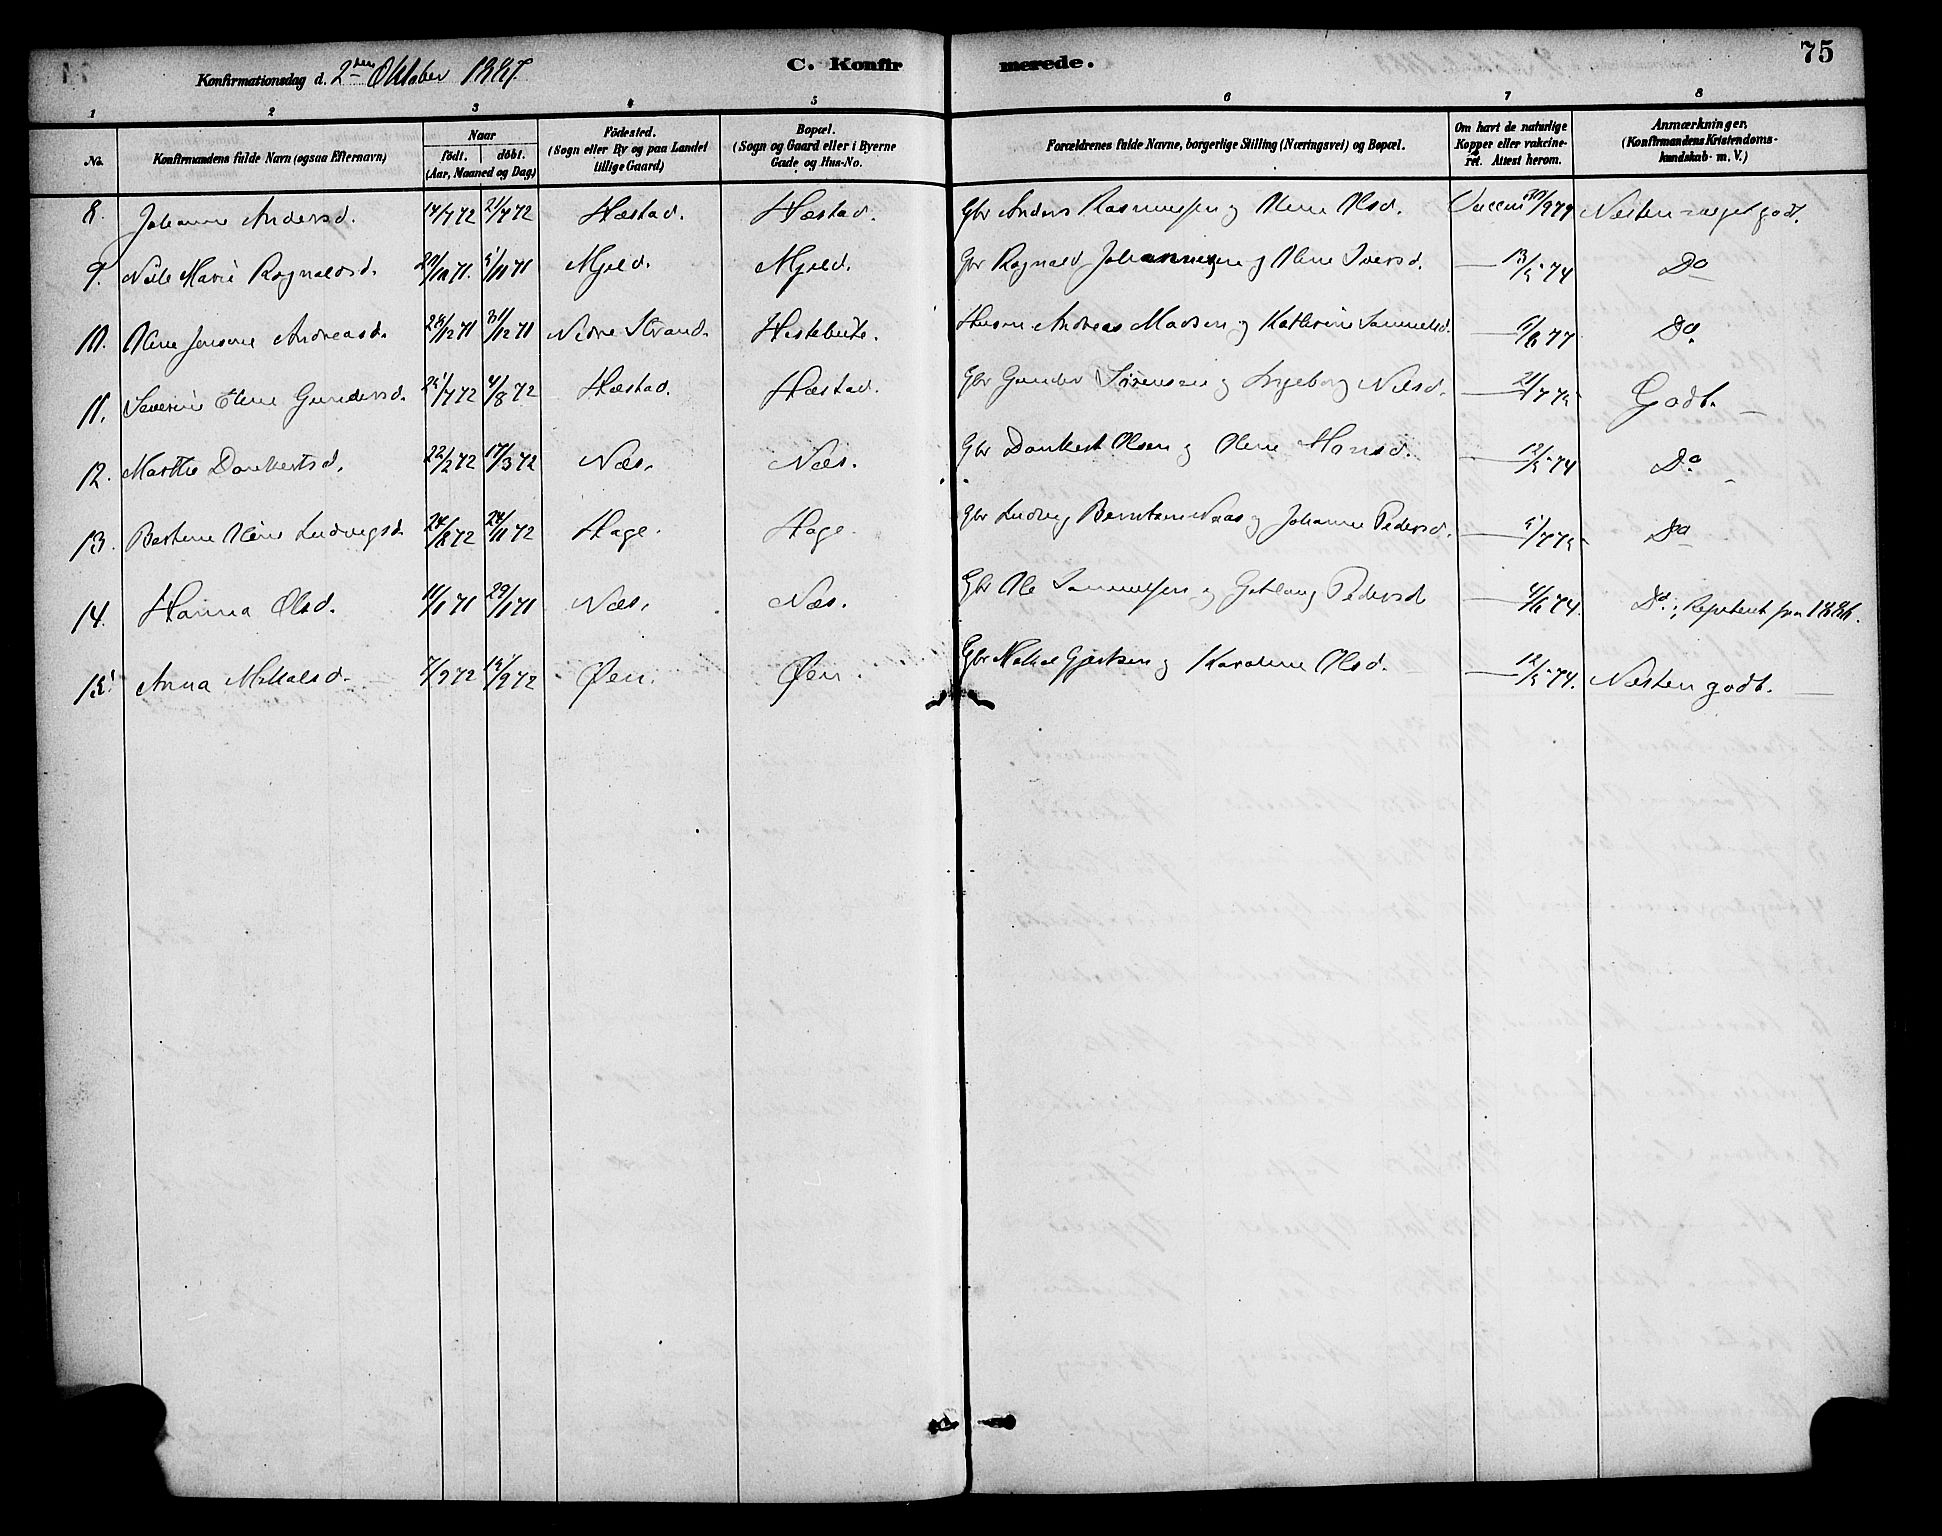 Konfirmationsdag d. 2den Oktober 1887 C. Konfirmerede. 75
1 2 3 4 5 6 7 8
No. Konfirmandens fulde Navn (ogsaa Efternavn) Naar födt. döbt. (Aar, Maaned og Dag) Födested. (Sogn eller By og paa Landet tillige Gaard) Bopæl. (Sogn og Gaard eller i Byerne Gade og Hus-No. Forældrenes fulde Navne, borgerlige Stilling (Næringsvei) og Bopæl. Om havt de naturlige Kopper eller vakcineret. Attest herom. Anmærkninger. (Konfirmandens Kristendomskundskab m. V.)
8. Johanne Andersd. 14/7 72 21/7 72 Hæstad. Hæstad. Gbr Anders Rasmussen og Oline Olsd. Vaccin 30/9 79 Næsten meget godt.
9. Nille Marie Ragnaldsd. 29/10 71. 5/11 71 Mjeld. Mjeld. Gbr Ragnald Johannessen og Oline Iversd. — 13/5 74 Do
10. Oline Jensine Andreasd. 28/12 71 31/12 71 Nedre Strand. Hestebeite. Husm Andreas Madsen og Kathrine Samuelsd. — 6/6 77 Do.
11. Severine Eline Gundersd. 25/7 72 4/8 72 Hæstad. Hæstad. Gbr Gunder Sørensen og Ingeborg Nilsd. — 21/7 75 Godt. —
12. Marthe Dankertsd. 22/2 72 17/3 72 Næs. Næs. Gbr Dankert Olsen og Oline Hansd. — 12/5 74 Do —
13. Bertine Oline Ludvigsd. 24/8 72 24/11 72 Hage. Hage. Gbr Ludvig og Johanne Pedersd. — 5/7 75 Do
14. Hanna Olsd. 11/1 71 29/1 71 Næs. Næs. Gbr Ole Samuelsen og Pedersd — 4/6 74. Do.; Repetent fra 1886.
15. Anna Mikalsd. 7/9 72 15/9 72 Øen. Øen. Gbr Mikal Gjertsen og Karoline Olsd. — 12/5 74. Næsten godt. —